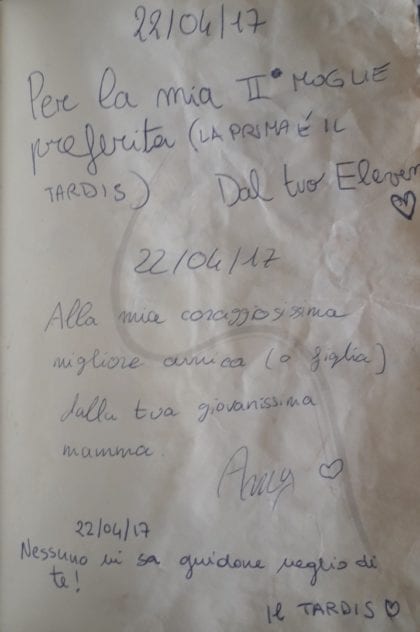 22/04/17
Per la mia II° MOGLIE
preferita (LA PRIMA É IL
TARDIS) Dal tuo Eleven
22/04/17
Alla mia coraggiosissima
migliore amica (o figlia)
dalla tua giovanissima
mamma.
Amy
22/04/17
Nessuno mi sa guidare meglio di
te!
Il TARDIS